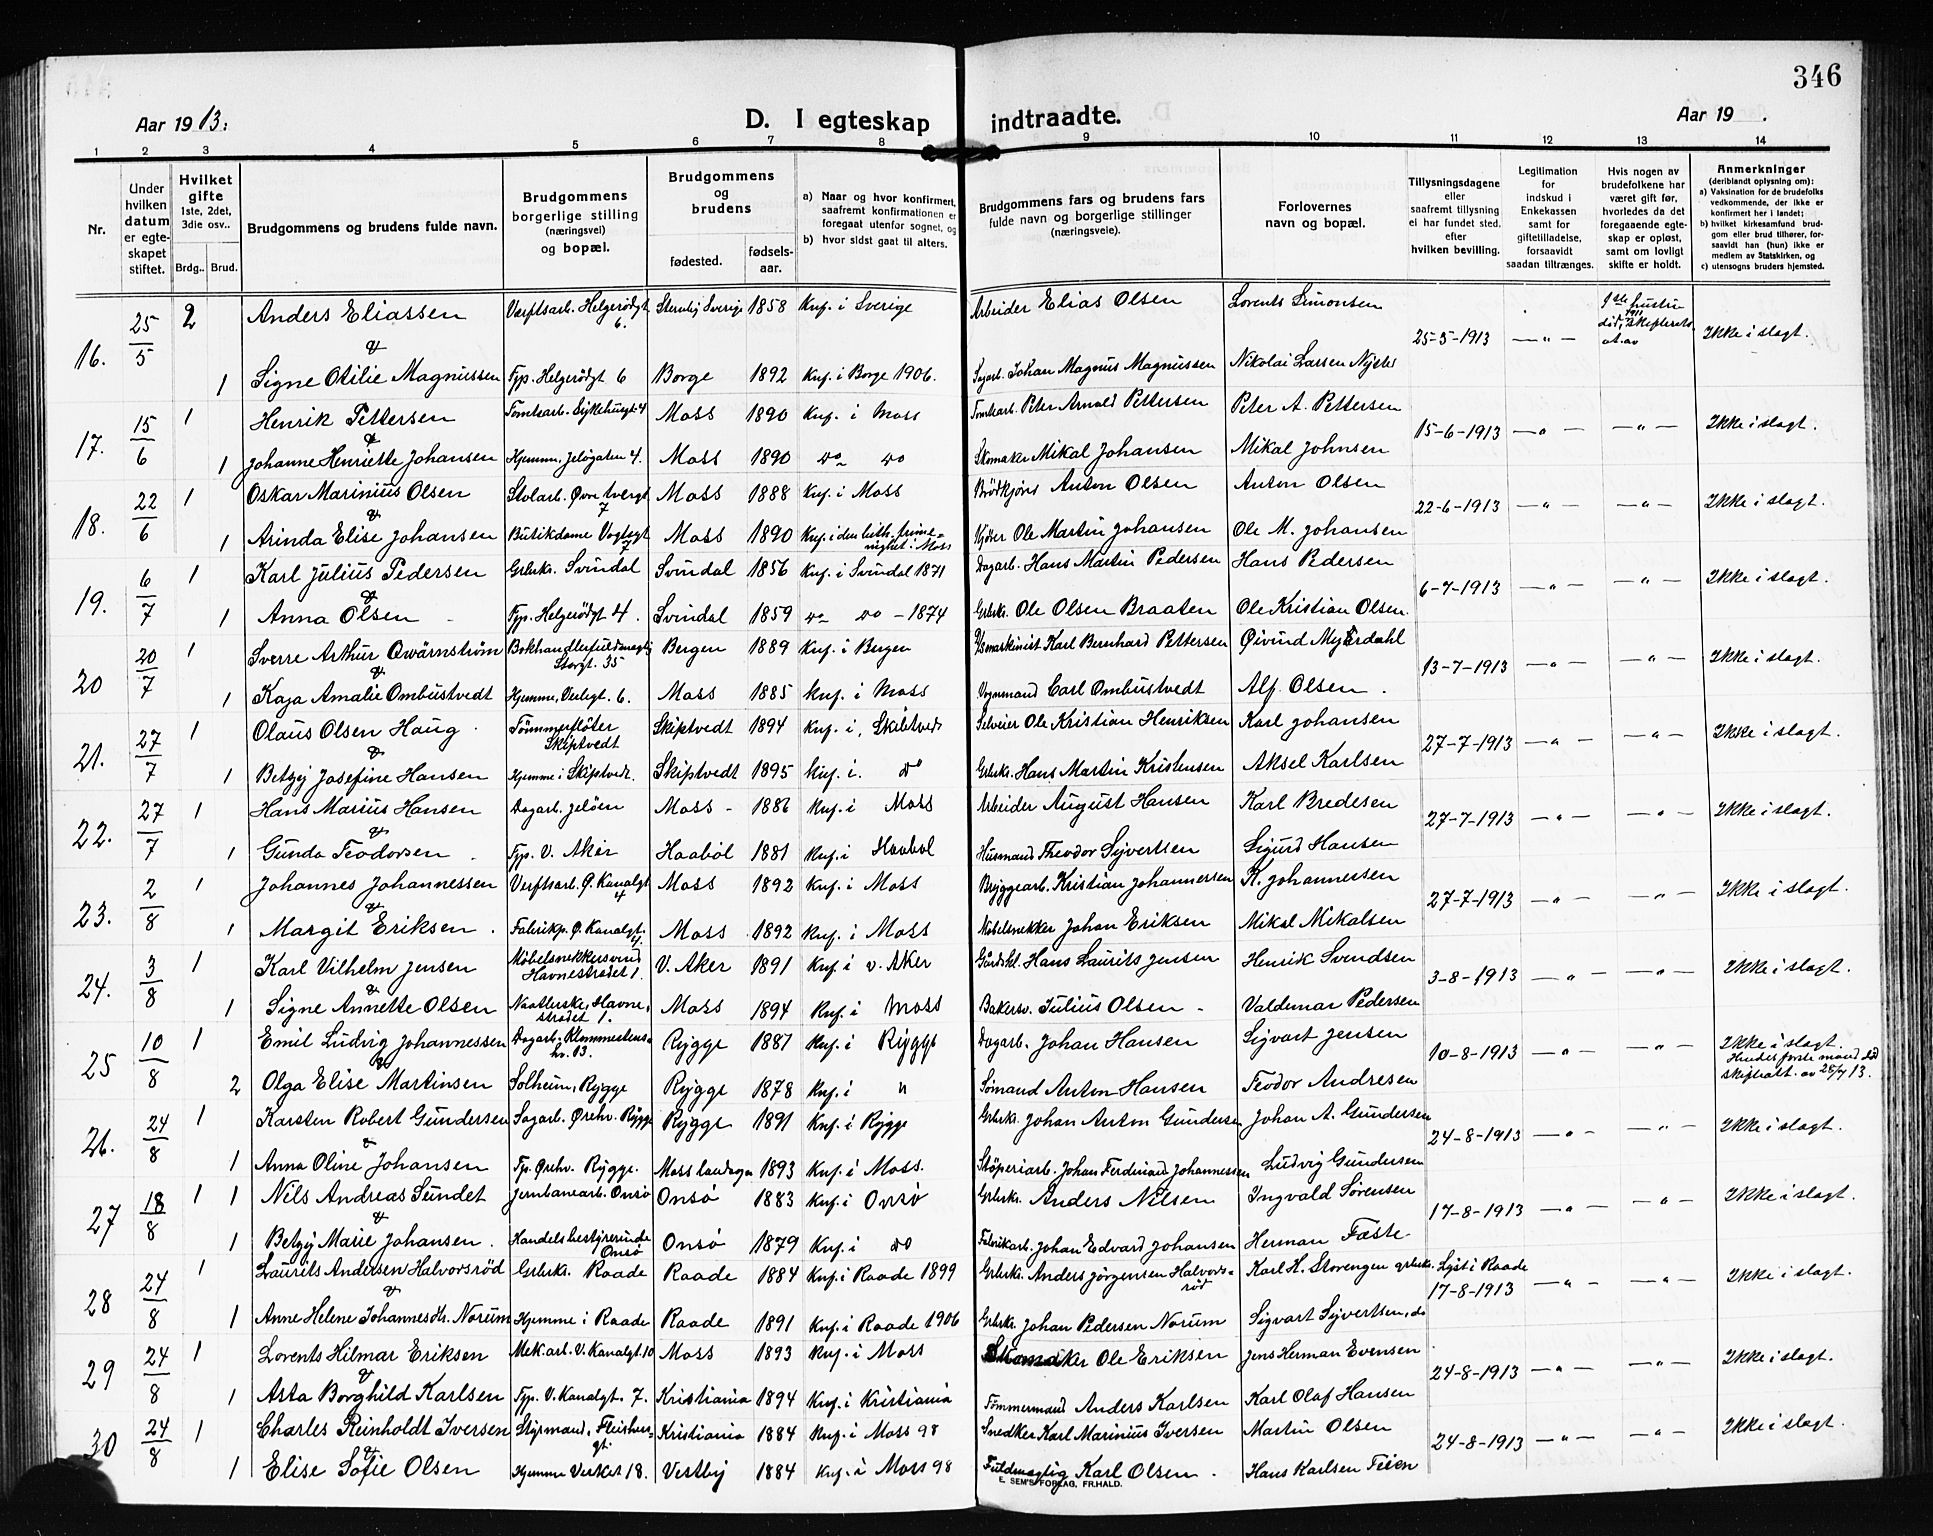 346
Aar 1913: D. I egteskap indtraadte. Aar 19 .
1 2 3 4 5 6 7 8 9 10 11 12 13 14
Nr.
Under hvilken datum er egteskapet stiftet.
Hvilket gifte 1ste, 2det, 3die osv.. Brdg.. Brud.
Brudgommens og brudens fulde navn.
Brudgommens borgerlige stilling (næringsvei) og bopæl.
Brudgommens og brudens fødested. fødselsaar.
a) Naar og hvor konfirmert, saafremt konfirmationen er foregaat utenfor sognet, og
b) hvor sidst gaat til alters.
Brudgommens fars og brudens fars fulde navn og borgerlige stillinger (næringsveie).
Forlovernes navn og bopæl.
Tillysningsdagene eller saafremt tillysning ei har fundet sted, efter hvilken bevilling.
Legitimation for indskud i Enkekassen samt for giftetilladelse, forsaavidt saadan tiltrænges.
Hvis nogen av brudefolkene har været gift før, hvorledes da det foregaaende egteskap er opløst, samt om lovligt skifte er holdt.
Anmerkninger (deriblandt oplysning om): a) Vaksination for de brudefolks vedkommende, der ikke er konfirmert her i landet; b) hvilket kirkesamfund brudgom eller brud tilhører, forsaavidt han (hun) ikke er medlem av Statskirken, og c) utensogns bruders hjemsted.
16. 25/5 2 Anders Eliassen Værftsarb. Helgerødgt 6. Sverige 1858 Knf. i Sverige Arbeider Elias Olsen Lorents Simonsen 25-5-1913 — " — 1ste hustru død, 1911 Ikke i slagt.
&
1 Signe Otilie Magnussen Fyp. Helgerødgt 6 Borge 1892 Knf. i Borge 1906. Sagarb. Johan Magnus Magnussen Nikolai Larsen
17. 15/6 1 Henrik Pettersen Tomtearb. Sykehusgt. 4 Moss 1890 Knf. i Moss Tomtearb. Peter Arnold Pettersen Peter A. Pettersen 15-6-1913 — " — — " — Ikke i slagt.
&
1 Johanne Henriette Johansen Hjemme, Jeløgaten 4. Moss 1890 do do Skomaker Mikal Johansen Mikal Johnsen
18. 22/6 1 Oskar Marinius Olsen Stolarb. Øvre tvergt 7 Moss 1888 Knf. i Moss Brødkjører Anton Olsen Anton Olsen 22-6-1913 — " — — " — Ikke i slagt.
&
1 Arinda Elise Johansen Butikdame Vogtsgt 7 Moss 1890 Knf. i den luth. frimenighet i Moss Ole Martin Johansen Ole M. Johansen
19. 6/7 1 Karl Julius Pedersen Grbrk. Svindal Svindal 1856 Knf. i Svindal 1871 Dagarb. Hans Martin Pedersen Hans Pedersen 6-7-1913 — " — — " — Ikke i slagt.
&
1 Anna Olsen Fyp. Helgerødgt 4. Svindal 1859 do do - 1874 Grbrk. Ole Olsen Braaten Ole Kristian Olsen.
20 20/7 1 Sverre Arthur Qwärnström Bokhandlerfuldmægtig Storgt. 35 Bergen 1889 Knf. i Bergen Karl Bernhard Pettersen Øivind Myrdahl 13-7-1913 — " — — " — Ikke i slagt.
&
1 Kaja Amalie Ombustvedt Hjemme, Verlegt. 6. Moss 1885 Knf. i Moss Vognmand Carl Ombustvedt Alf. Olsen.
21. 27/7 1 Olaus Olsen Haug. Tømmerfløter Skiptvedt Skiptvedt 1894 Knf. i, Skibtvedt Selveier Ole Kristian Henriksen Karl Johansen 27-7-1913 — " — — " — Ikke i slagt.
&
1 Betzy Josefine Hansen Hjemme i Skiptvedt. Skiptvedt 1895 Knf. i. do Grbrk. Hans Martin Kristensen Aksel Karlsen
22. 27/7 1 Hans Marius Hansen Dagarb. Jeløen Moss - 1886 Knf. i Moss Arbeider August Hansen Karl Bredesen 27-7-1913 — " — — " — Ikke i slagt.
&
1 Gunda Teodorsen. Fyp. V. Aker Haabøl 1881 Knf. i Haabøl Husmand Theodor Syvertsen Sigurd Hansen
23. 2/8 1 Johannes Johannessen Verftsarb. Ø. Kanalgt 4 Moss 1892 Knf. i Moss Bryggearb. Kristian Johannessen K. Johannessen 27-7-1913 — " — — " — Ikke i slagt.
&
1 Margit Eriksen. Fabrikp. Ø. Kanalgt. 4. Moss 1892 Knf. i Moss Møbelsnekker Johan Eriksen Mikal Mikalsen
24. 3/8 1 Karl Vilhelm Jensen Møbelsnekkersvend Havnestrædet 1. V. Aker 1891 Knf. i v. Aker Gårdskl. Hans Laurits Jensen Henrik Svendsen 3-8-1913 — " — — " — Ikke i slagt.
&
1 Signe Annette Olsen Naatlerske, Havnestrædet 1. Moss 1894 Knf. i Moss Bakersv. Julius Olsen - Valdemar Pedersen
25 10/8 1 Emil Ludvig Johannessen Dagarb. 13. Rygge 1887 Knf. i Rygge Dagarb. Johan Hansen Sigvart Jensen 10-8-1913 — " — — " — Ikke i slagt. Hendes første mand død skifteatt. av 28/7 13.
&
2 Olga Elise Martinsen Solheim, Rygge Rygge 1878 Knf. i " Sømand Anton Hansen Teodor Andresen
26. 24/8 1 Karsten Robert Gundersen Sagarb. Ørehv. Rygge Rygge 1891 Knf. i Rygge Grbrk. Johan Anton Gundersen Johan A. Gundersen 24-8-1913 — " — — " — Ikke i slagt.
&
1 Anna Oline Johansen Fp. Ørehv. Rygge. Moss landsogn 1893 Knf. i Moss. Støperiarb. Johan Ferdinand Johannessen Ludvig Gundersen
27 18/8 1 1 Nils Andreas Sundet Jernbanearb. Onsø Onsø 1883 Knf. i Onsø Grbrk. Anders Nilsen Ingvald Sørensen 17-8-1913 — " — — " — Ikke i slagt.
&
1 Betzy Marie Johansen. Handelsbestyrerinde Onsø Onsø 1879 Knf. i do Fabrikarb. Johan Edvard Johansen Herman Fæste
28 24/8 1 Laurits Andersen Halvorsrød Grbrk. Raade Raade 1884 Knf. i Raade 1899 Grbrk. Anders Jørgensen Halvorsrød Karl H. Storengen grbrk. Lyst i Raade 17-8-1913 — " — — " — Ikke i slagt.
&
1 Anne Helene Johannesdtr. Norum Hjemme i Raade Raade 1891 Knf. i Raade 1906 Grbrk. Johan Pedersen Norum Sigvart Syvertsen, do
29 24/8 1 Lorents Hilmar Eriksen Mek. arb. V. Kanalgt 10 Moss 1893 Knf. i Moss Skomaker Ole Eriksen Jens Herman Evensen 24-8-1913 — " — — " — Ikke i slagt.
&
1 Asta Borghild Karlsen Fyp. V. Kanalgt. 7. Kristiania 1894 Knf. i Kristiania Tømmermand Anders Karlsen Karl Olaf Hansen
30 24/8 1 Charles Reinholdt Iversen Styrmand, Kristiania 1884 Knf. i Moss 98 Snedker Karl Marinius Iversen Martin Olsen 24-8-1913 — " — — " — Ikke i slagt.
&
1 Elise Sofie Olsen Hjemme Verket 18. Vestby 1884 Knf. i Moss 98 Fuldmægtig Karl Olsen. Hans Karlsen Feien
E. SEM'S FORLAG, FR.HALD.